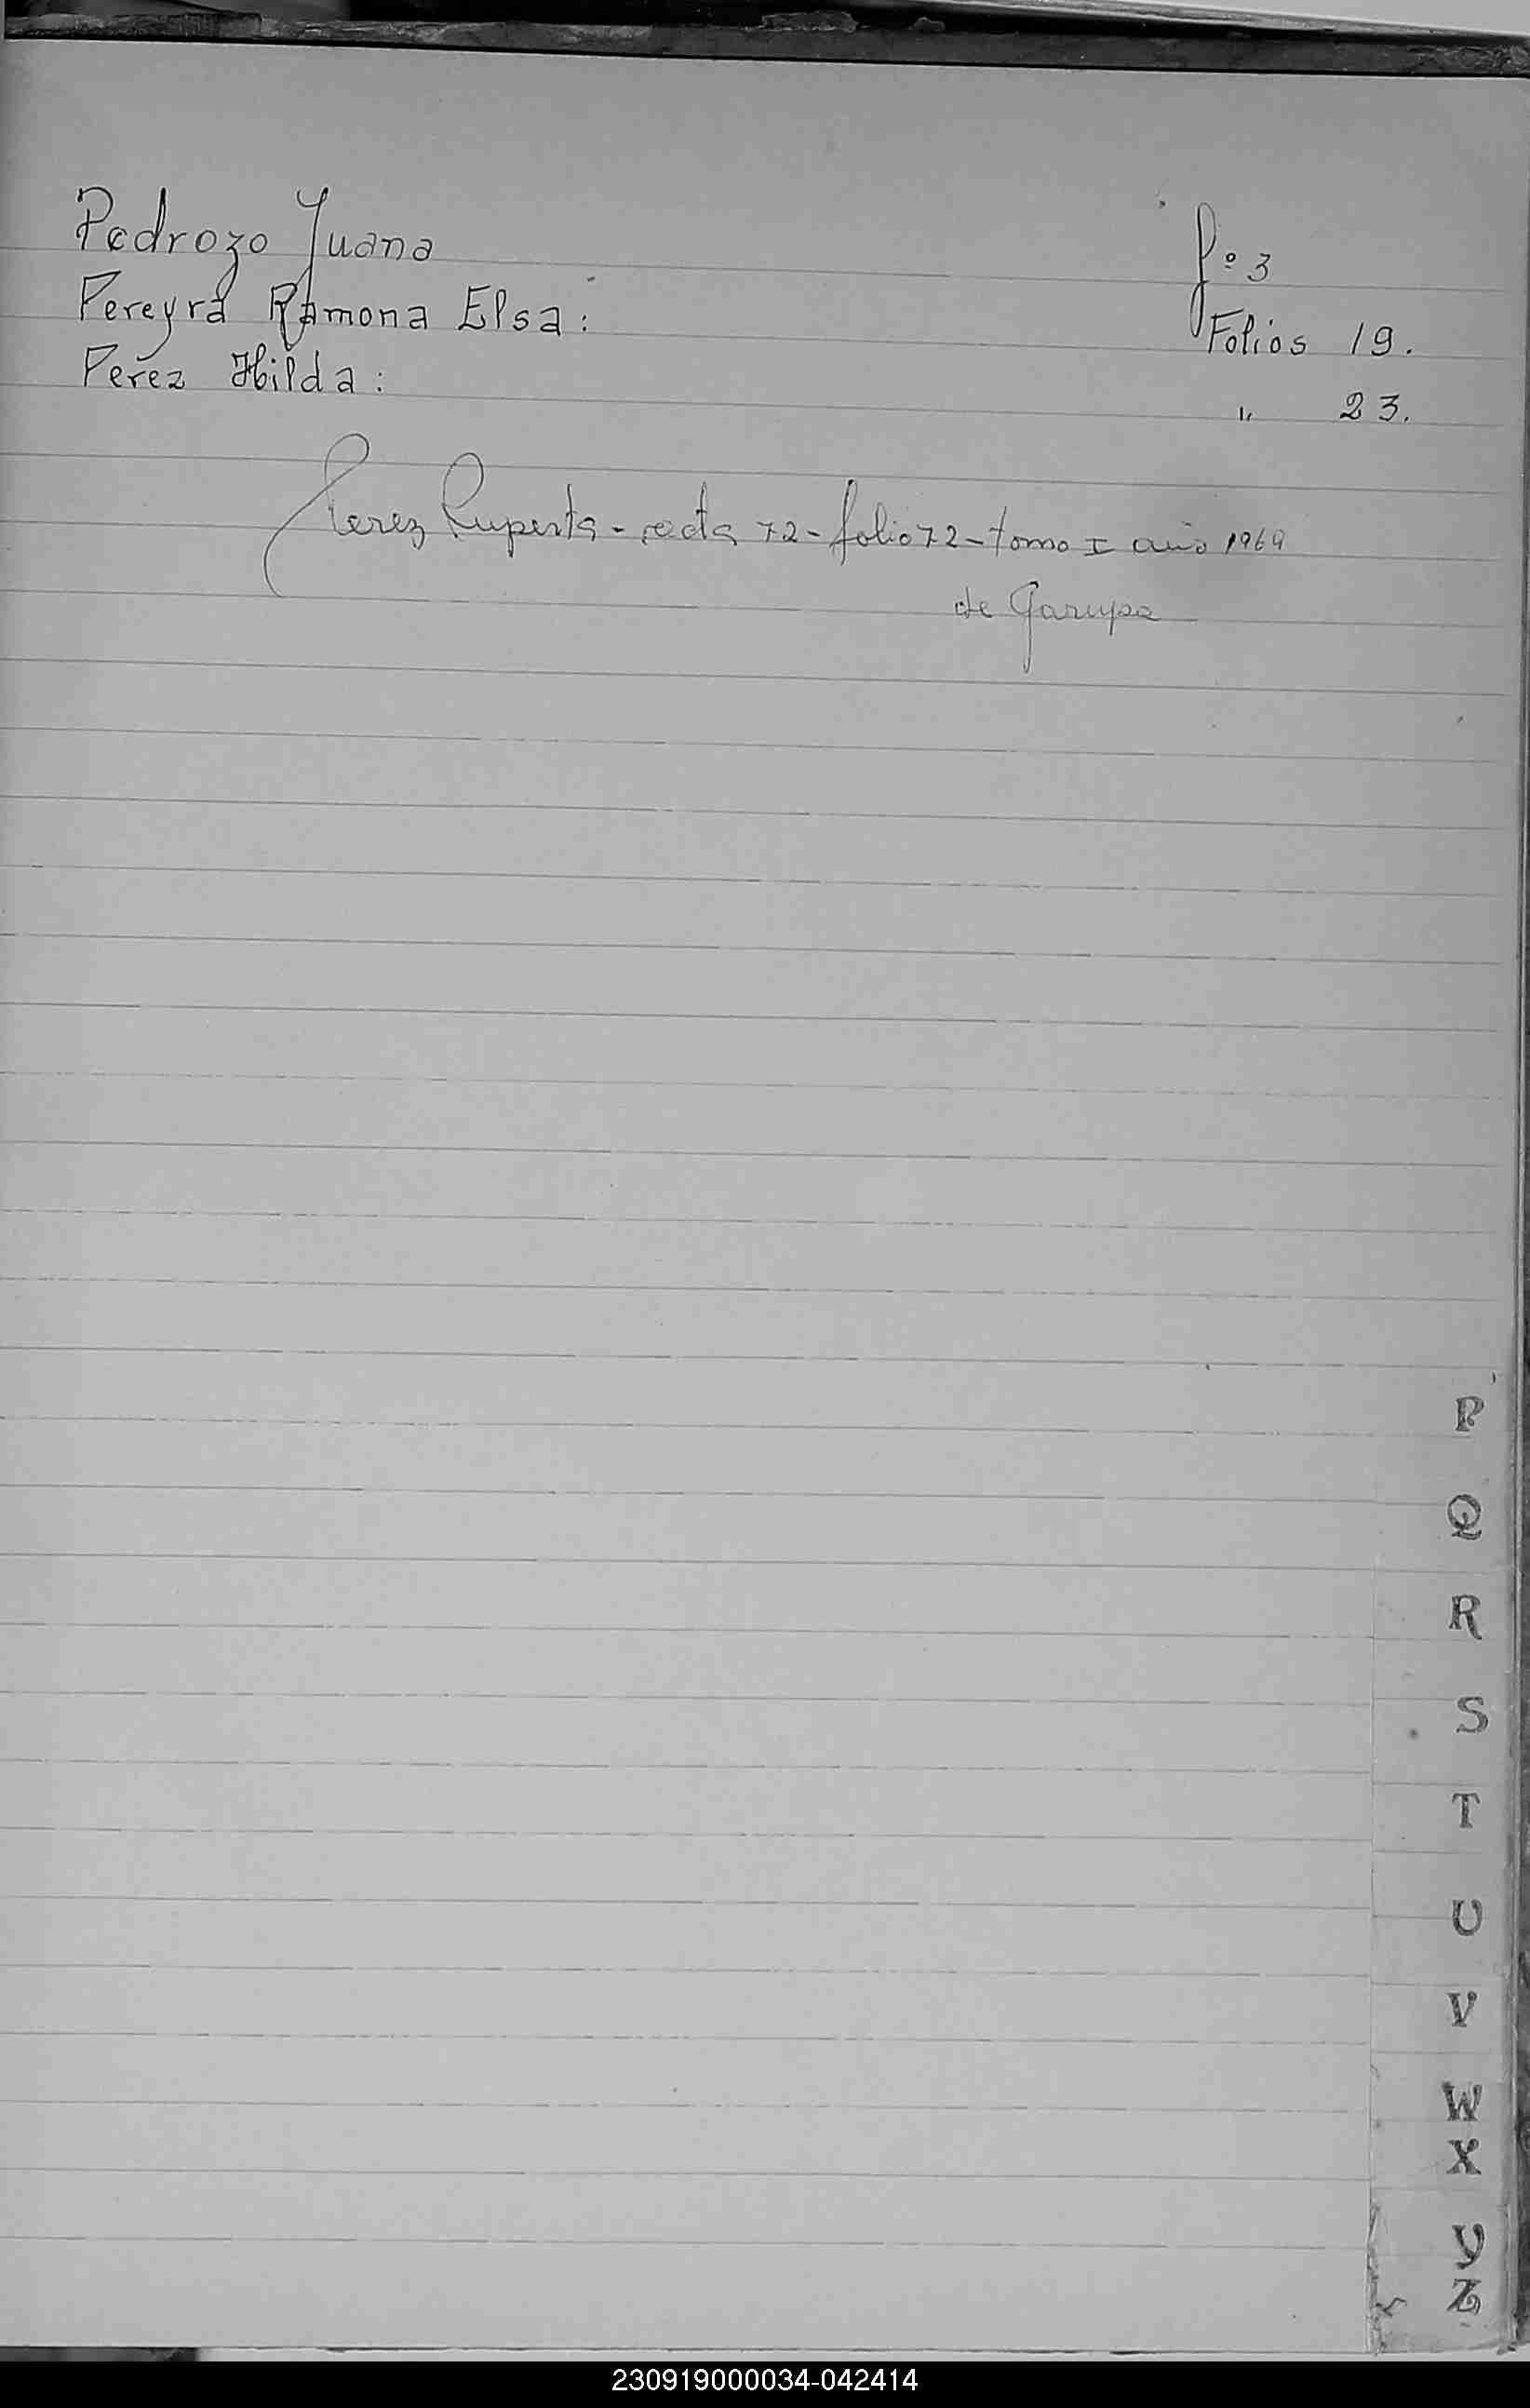 Pedrozo Juana fº 3
Pereyra Ramona Elsa: Folios 19.
Perez Hilda: " 23.
Perez Ruperta - acta 72 - folio 72 - tomo I año 1969
de Garupa
P
Q
R
S
T
U
V
W
X
Y
Z
230919000034-042414